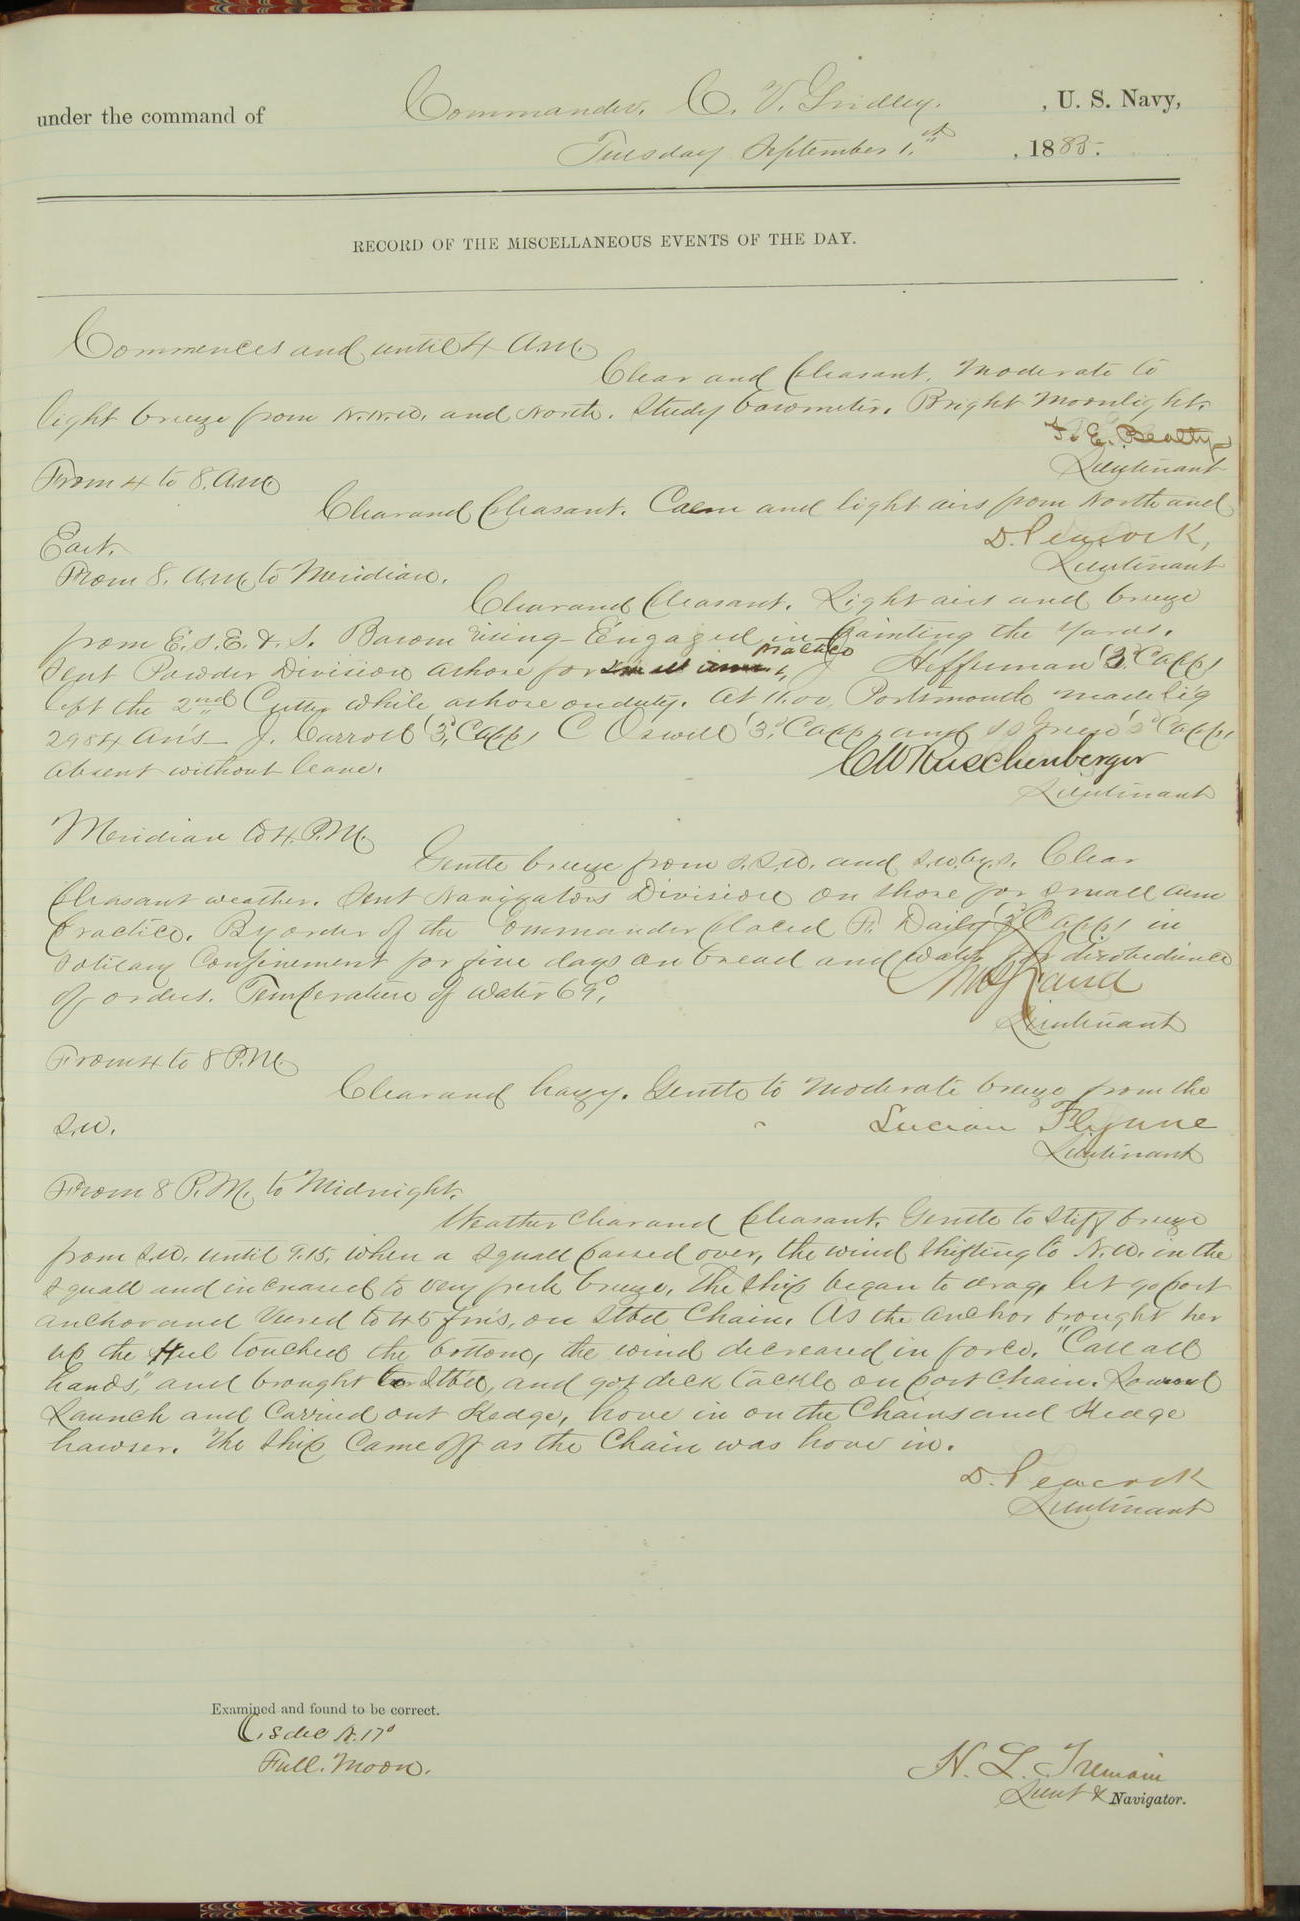 under the command of Commander, C. V. Gridley. , U. S. Navy,
Tuesday September 1.st , 1885.
RECORD OF THE MISCELLANEOUS EVENTS OF THE DAY.
Commences and until 4 A.M.
Clear and pleasant. Moderate to
light breeze from N.N.W. and North. Steady barometer. Bright Moonlight.
F. E. Beatty
Lieutenant
From 4 to 8. A.M.
Clear and pleasant. Calm and light airs from North and
East.
D. Peacock,
Lieutenant
From 8. A.M. to Meridian.
Clear and pleasant. Light airs and breeze
from E.S.E. & S. Barom rising - Engaged in painting the yards.
Sent Powder Division ashore for practice J Heffernan (3d Capp)
left the 2nd Cutter while ashore on duty. At 11.00, Portsmouth made sig
2984 An's - J. Carroll (3d Capp) C Oswell (3d Capp) and Green (3d Capp)
absent without leave.
C W Ruschenberger
Lieutenant
Meridian to 4. P.M.
Gentle breeze from S.S.W. and S.W. by S. Clear
pleasant weather. Sent Navigators Division on shore for small arm
practice. By order of the Commander placed F. Daily (3d Capp) in
solitary confinement for five days on bread and water for disobedience
of orders. Temperature of water 69°.
Lieutenant
From 4 to 8 P.M.
Clear and hazy. Gentle to moderate breeze from the
S.W.
Lucian Flynne
Lieutenant
From 8 P.M. to Midnight.
Weather clear and pleasant. Gentle to stiff breeze
from S.W. until 9.15, when a squall passed over, the wind shifting to N.W. in the
squall and increased to very fresh breeze. The ship began to drag, let go port
anchor and veered to 45 fm's, on Stbd Chain. As the anchor brought her
up the Heel touched the bottom, the wind decreased in force. "Call all
hands," and brought to Stbd, and got deck tackle on port chain. Lowered
Launch and carried out Kedge, hove in on the Chains and Kedge
hawser. The ship came off as the chain was hove in.
D. Peacock
Lieutenant
Examined and found to be correct.
☾'s dec N. 17°
Full. Moon.
H. L. Tremain
Lieut & Navigator.